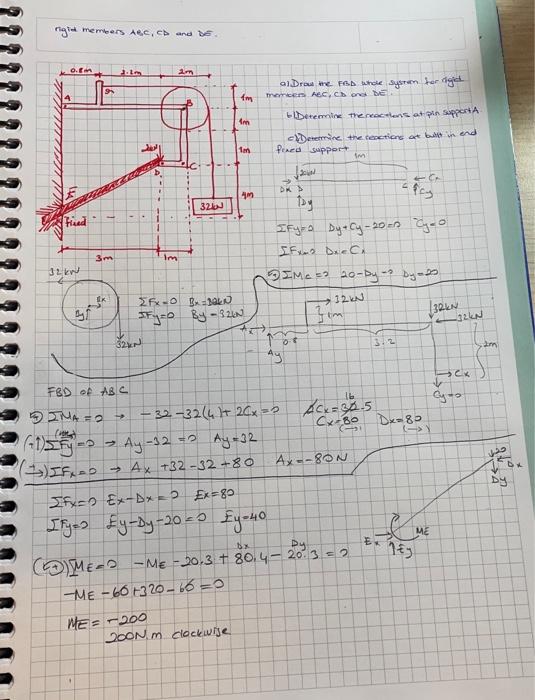 rigid members ABC, CD and DE.
0.8m 3.2m 2m
a) Draw the FBD whole system for rigid
members ABC, CD and DE.
b) Determine the reactions at pin support A
c) Determine the reactions at built in end
fixed support
A
B
1m
1m
1m
D
C
4m
32kN
E
Fixed
3m 1m
1m
20kN
Dx D
Dy
C
← Cx
Cy
ΣFy=0 Dy+Cy-20=0 Cy=0
ΣFx=0 Dx=Cx
ΣMc=0 20-Dy=0 Dy=20
32kN
Bx
By
32kN
ΣFx=0 Bx=32kN
ΣFy=0 By=32kN
32kN
1m
Ax
0.8
Ay
3.2
32kN
32kN
2m
Cx
Cy=0
FBD of ABC
ΣMA=0 → -32-32(4)+2Cx=0
Cx=80 Dx=80
(→) (→)
(+↑)ΣFy=0 → Ay-32=0 Ay=32
(→)ΣFx=0 → Ax+32-32+80 Ax=-80N
ΣFx=0 Ex-Dx=0 Ex=80
ΣFy=0 Ey-Dy-20=0 Ey=40
20
Dx
Dy
Ex
Ey
ME
Dx Dy
ΣME=0 -ME-20.3+80.4-20.3=0
-ME-60+320-60=0
ME=-200
200N.m clockwise